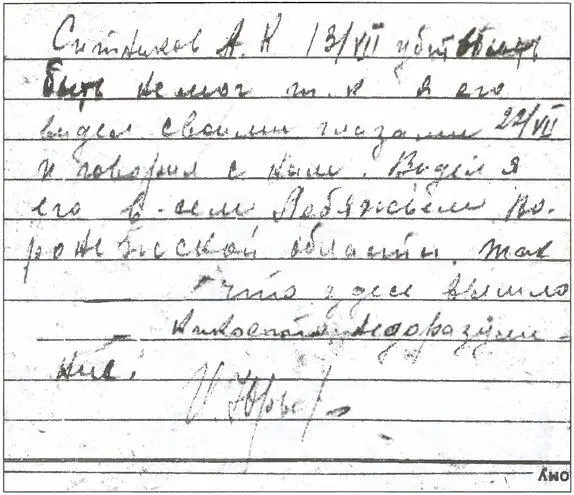 Ситников А. К 13/VII убит
быть не мог т. к я его
видел своими глазами 22/VII
и говорил с ним. Видел я
его в селе Лебяжьем Во.
ронежской области. Так
что здесь вышло
какоето недоразуме-
ние.
ому